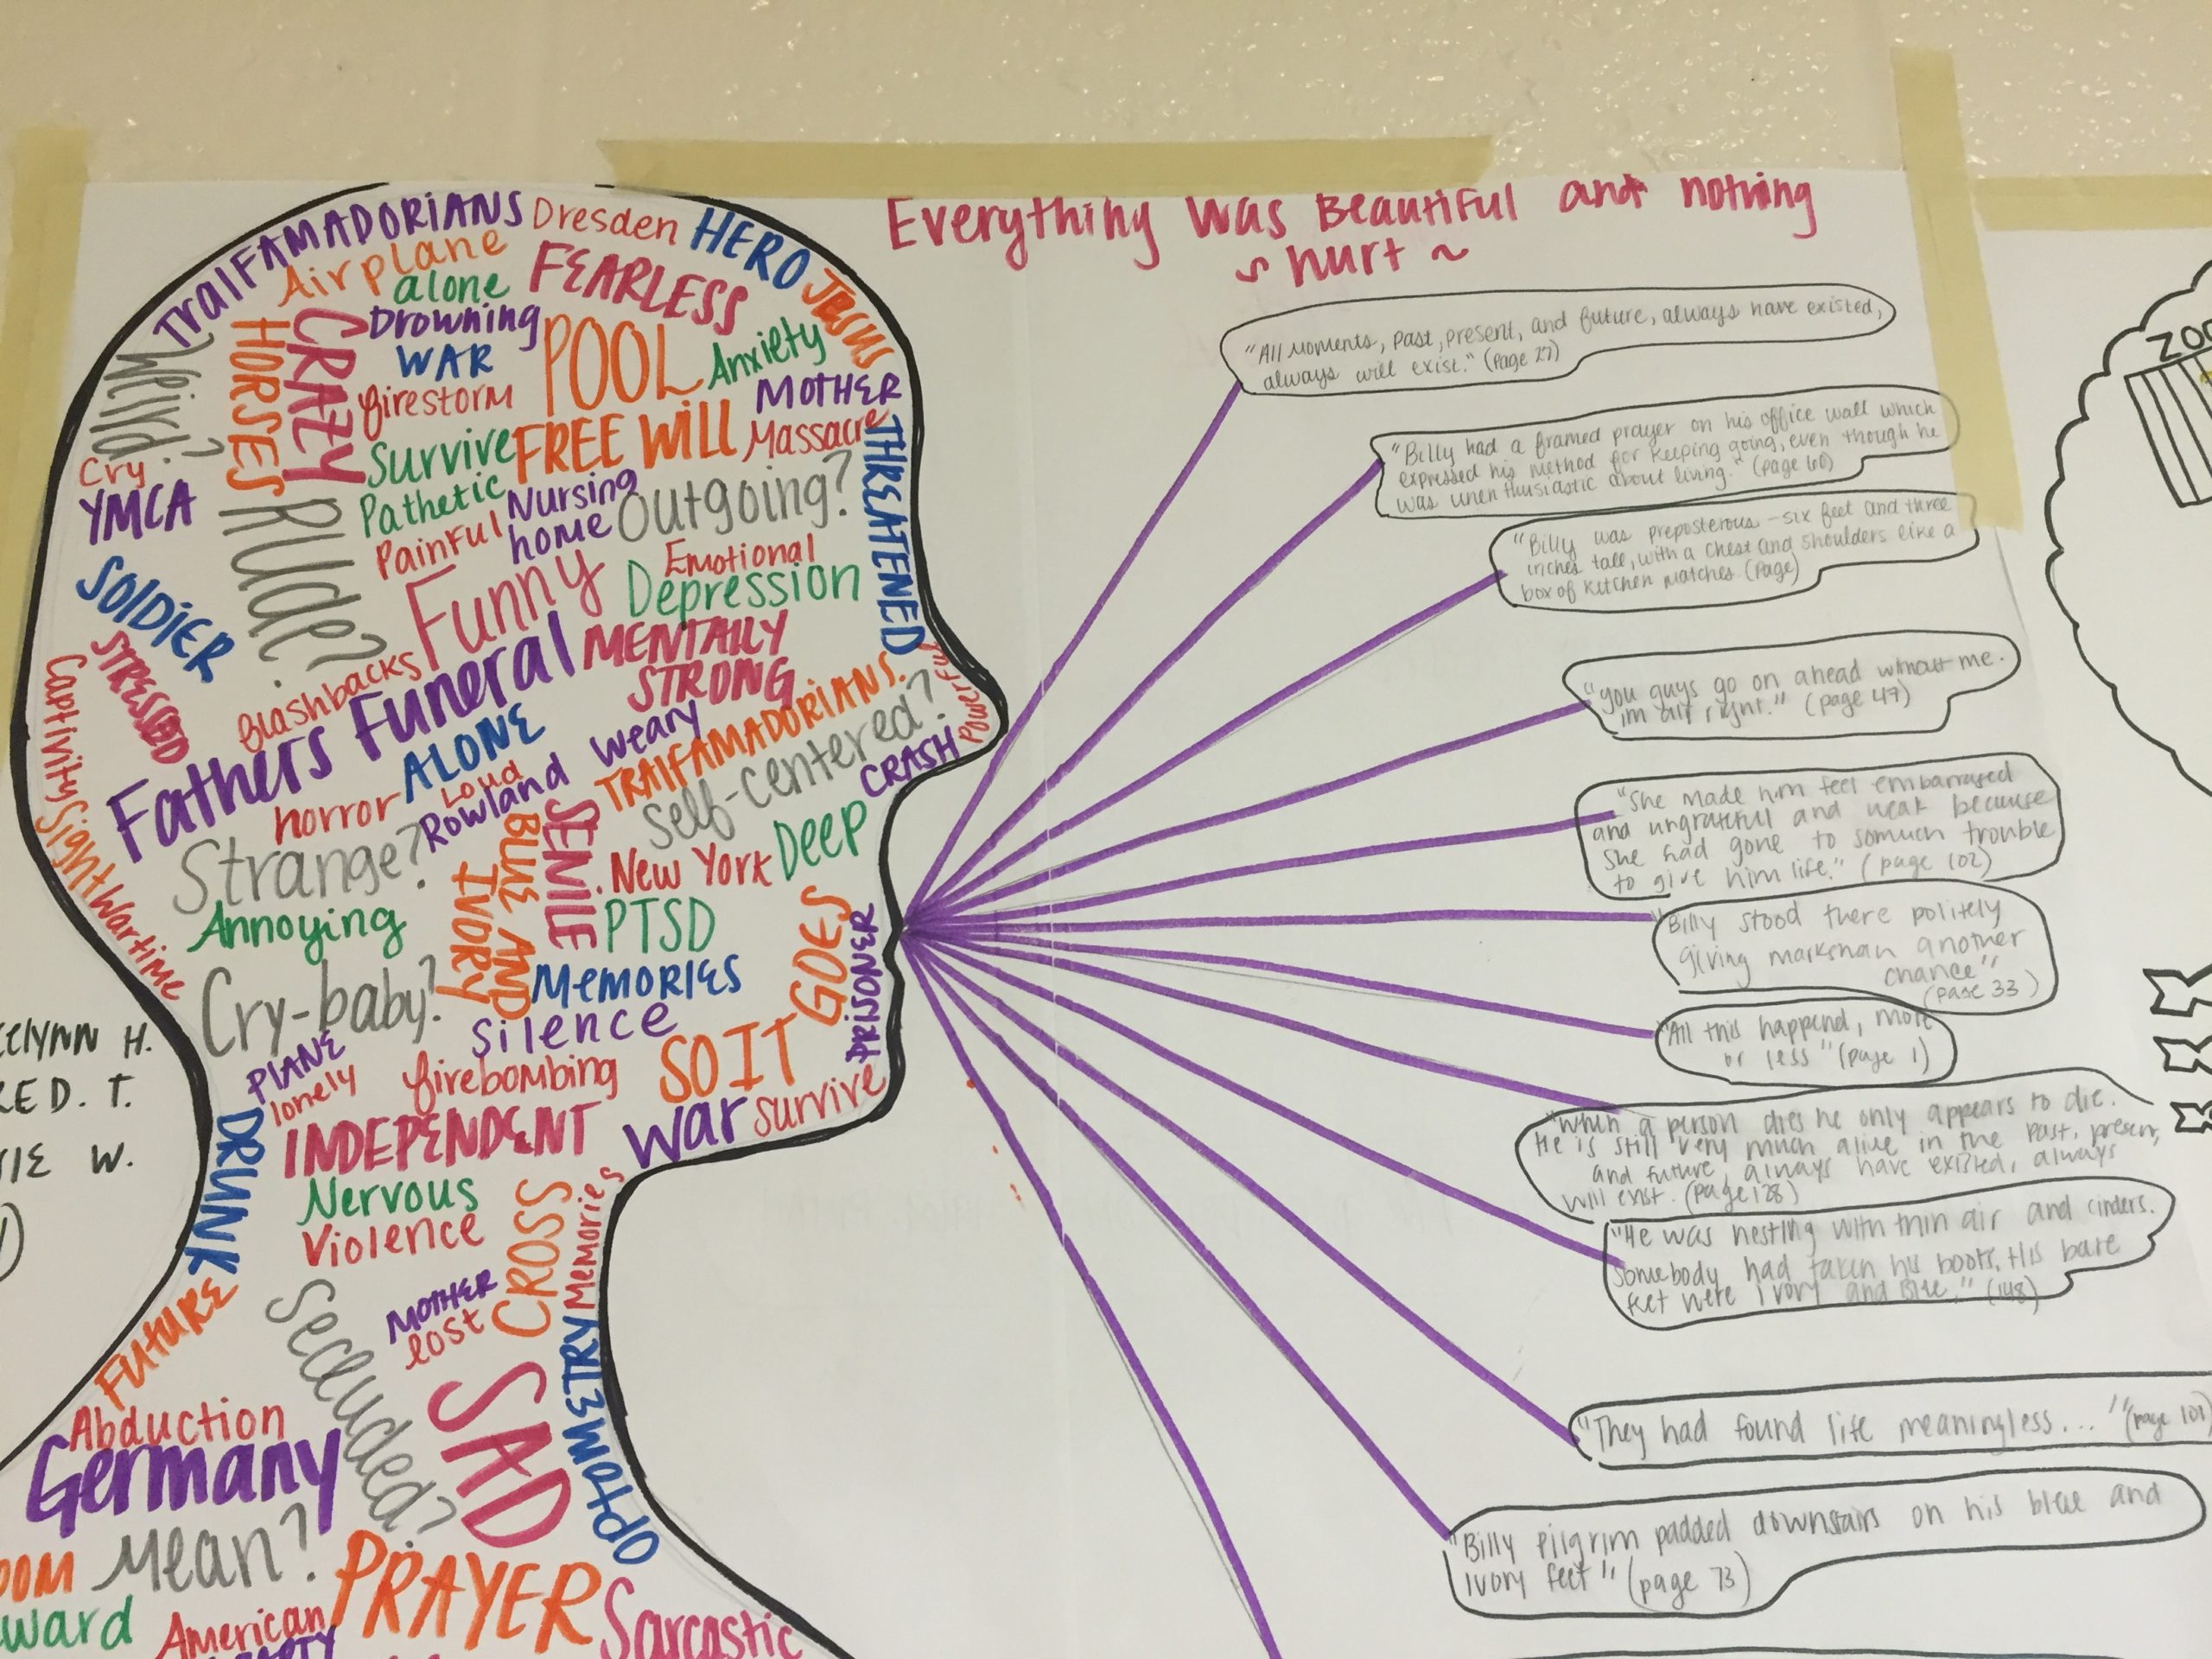 Everything was Beautiful and nothing
~ hurt ~
TralFAMADORIANS
Dresden
HERO
Jesus
Airplane
alone
FEARLESS
Drowning
WAR
POOL
Anxiety
HORSES
CRAZY
Weird?
firestorm
MOTHER
Survive
FREE WILL
Massacre
THREATENED
Cry
YMCA
Pathetic
Nursing
home
Outgoing?
RUDE?
Painful
Emotional
Depression
Funny
SOLDIER
STRESSED
MENTALLY
STRONG
flashbacks
Fathers Funeral
Powerful
Captivity
ALONE
Loud
Rowland Weary
TRAlFAMADORIANS.
Self-centered?
CRASH
horror
Sight
Wartime
Strange?
BLUE AND
IVORY
SENILE
New York
Deep
Annoying
PTSD
GOES
PRISONER
Cry-baby?
Memories
Silence
SO IT
PLANE
lonely
firebombing
war
survive
INDEPENDENT
DRUNK
Nervous
Violence
CROSS
Memories
FUTURE
Secluded?
MOTHER
lost
SAD
OPTOMETRY
Abduction
Germany
Mean?
PRAYER
OOM
ward
American
Sarcastic
ElYNN H.
ED. T.
IE W.
ZOO
"All moments, past, present, and future, always have existed,
always will exist." (page 27)
"Billy had a framed prayer on his office wall which
expressed his method for keeping going, even though he
was unenthusiastic about living." (page 60)
"Billy was preposterous - six feet and three
inches tall, with a chest and shoulders like a
box of kitchen matches (page)
"you guys go on ahead without me.
im alright." (page 47)
"She made him feel embarrased
and ungrateful and weak because
she had gone to somuch trouble
to give him life." (page 102)
"Billy stood there politely
giving marksman another
chance"
(page 33)
"All this happend, more
or less" (page 1)
"when a person dies he only appears to die.
He is still very much alive in the past, present,
and future, always have existed, always
will exist. (page 128)
"He was nestling with thin air and cinders.
Somebody had taken his boots, His bare
feet were ivory and Blue." (148)
"They had found life meaningless..." (page 101)
"Billy pilgrim padded downstairs on his blue and
ivory feet" (page 73)